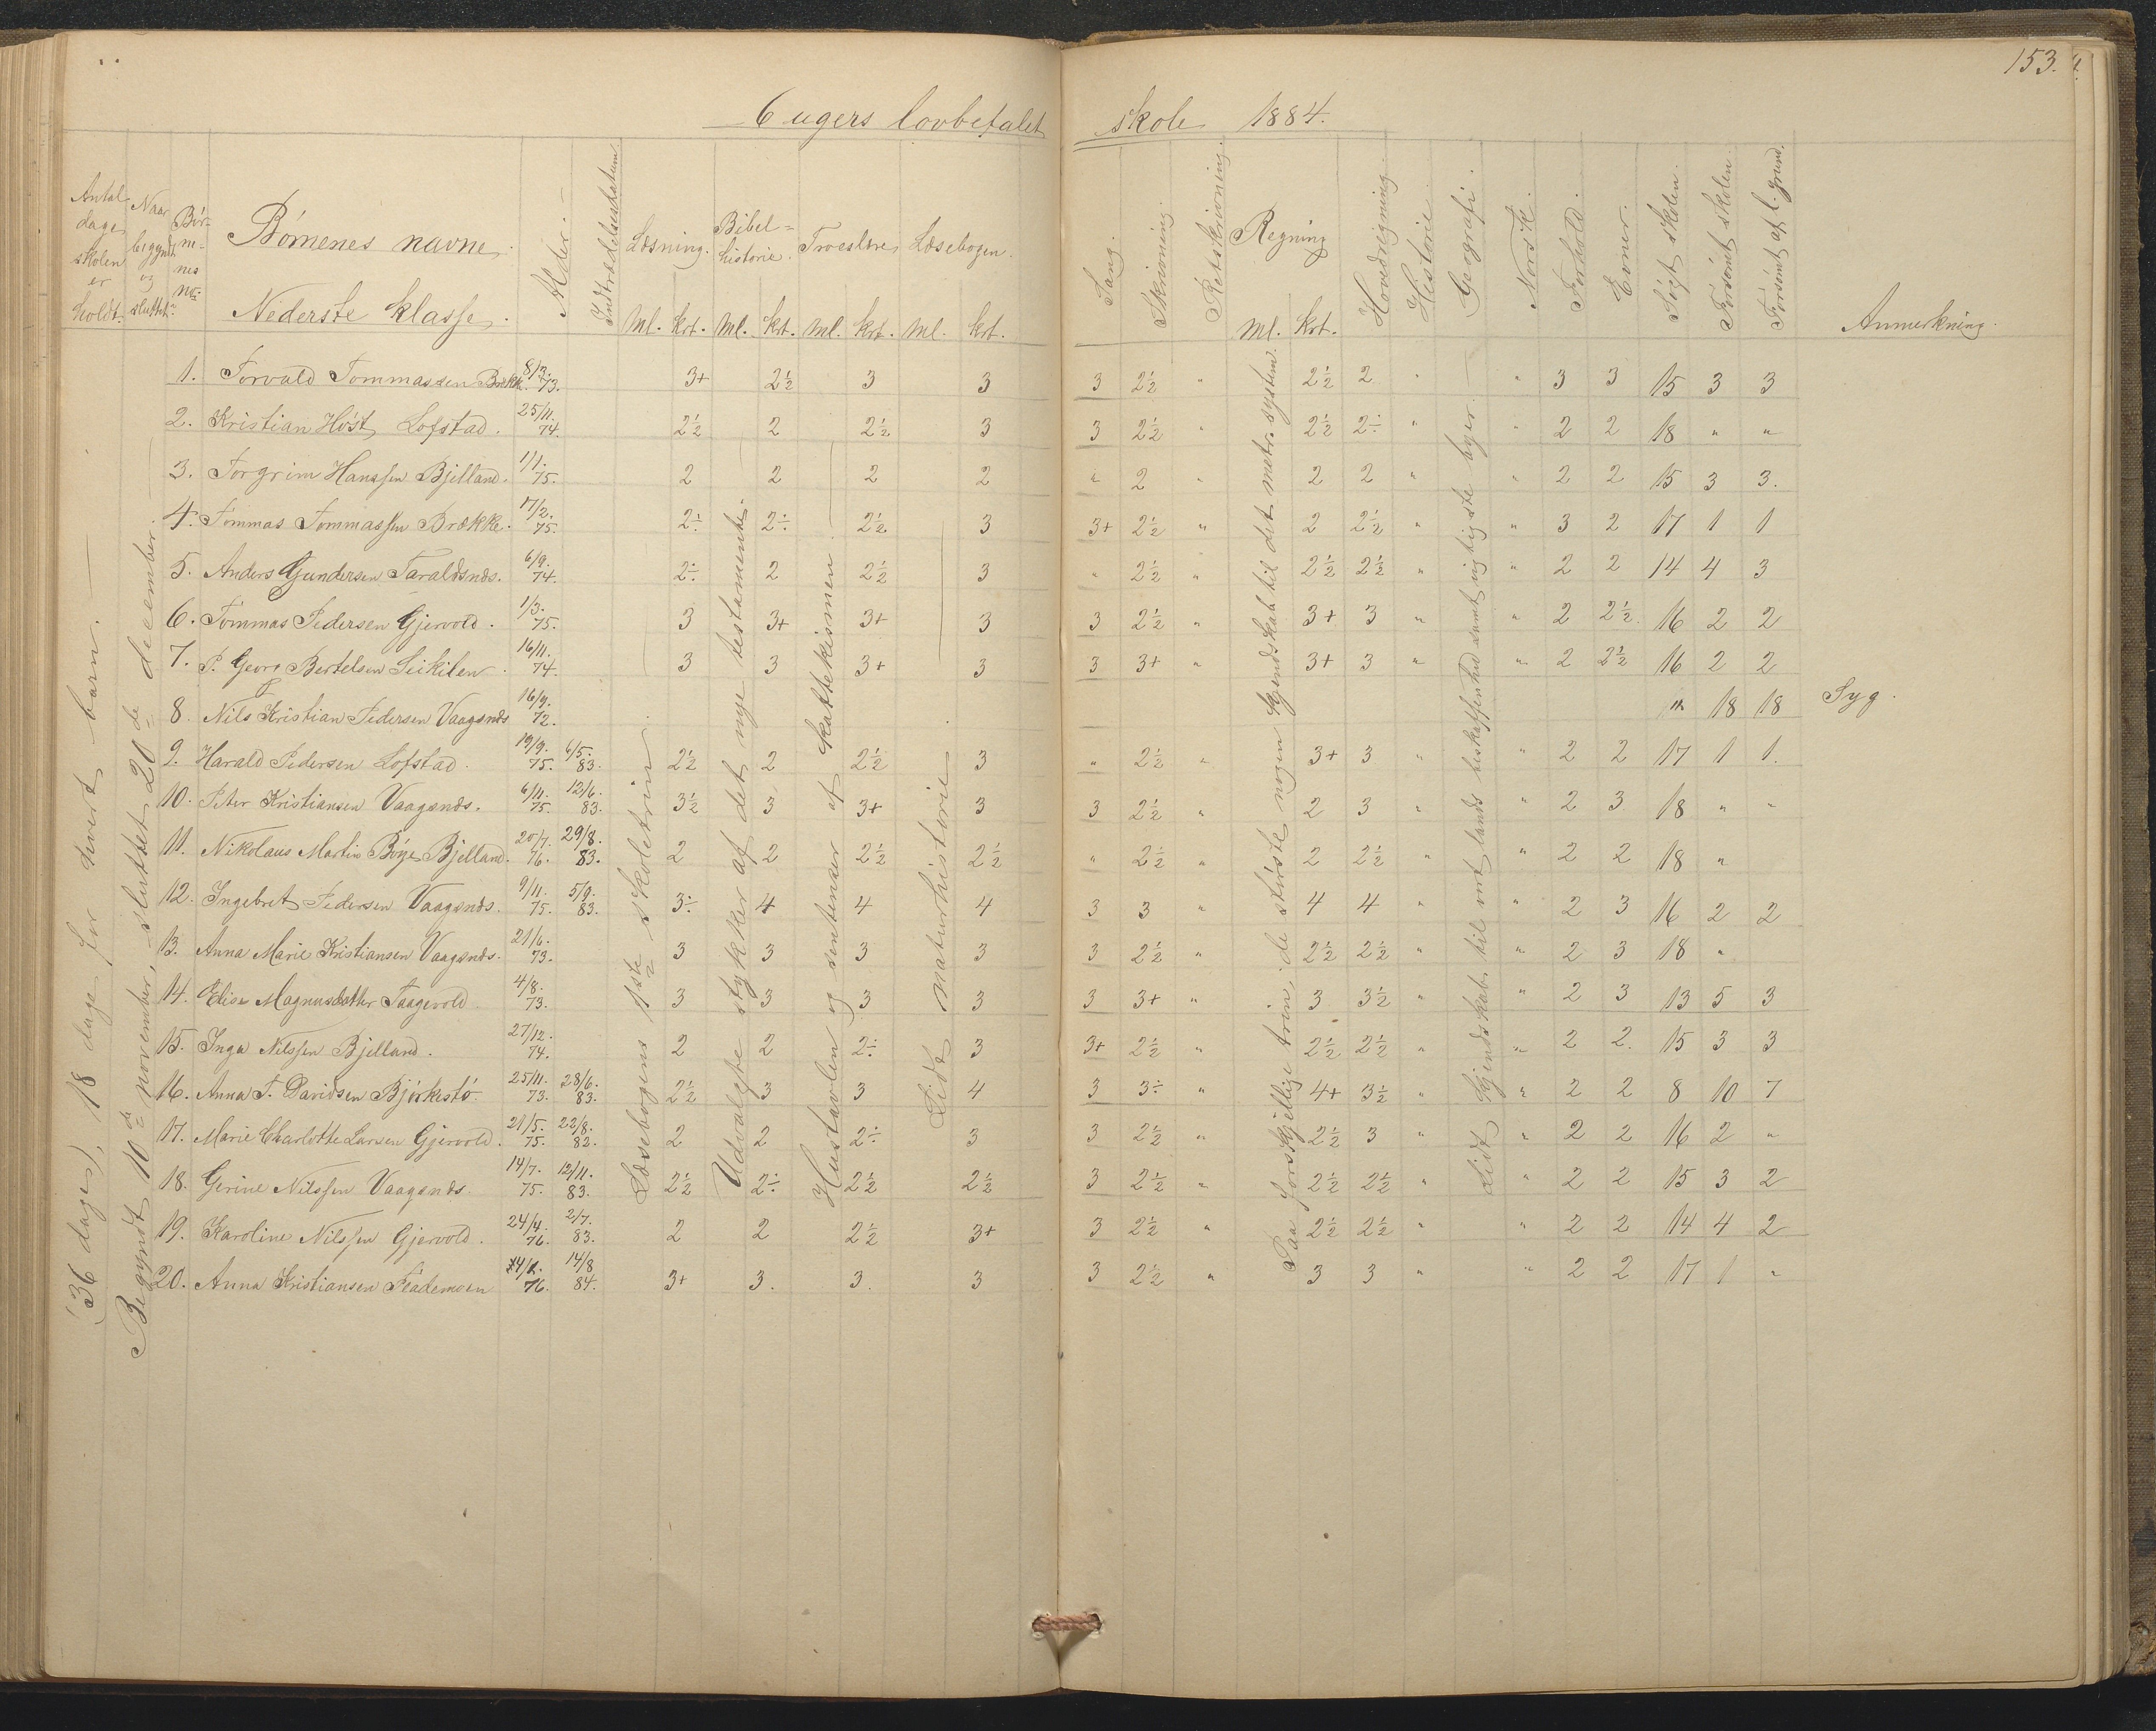 153.
6 ugers lovbefalet skole 1884.
Antal dage skolen er holdt.
Naar begyndt og sluttet.
Børnenes no.
Børnenes navne.
Nederste klasse.
Alder.
Indtrædelsesdatum.
Læsning. Ml. Krt.
Bibelhistorie. Ml. Krt.
Troeslære. Ml. Krt.
Læsebogen. Ml. Krt.
Sang.
Skrivning.
Retskrivning.
Regning Ml. Krt.
Hovedregning.
Historie.
Geografi.
Norsk.
Forhold.
Evner.
Søgt skolen.
Forsømt skolen.
Forsømt af l. grund.
Anmerkning.
(36 dage), 18 dage for hvert barn.
Begyndt 10de november, sluttet 20de december.
Læsebogens 1ste skoletrin.
Udvalgte stykker af det nye testamente
Hustavlen og sentenser af kattekismen
Lidt naturhistorie
Paa forskjellige trin, de største nogen kjendskab til det metr. system.
Lidt kjendskab til vort lands beskaffenhed samt vigtigste byer.
1. Torvald Tommassen Brække 8/3. 73. 3+ 2½ 3 3 3 2½ " 2½ 2 " " 3 3 15 3 3
2. Kristian Høst Lofstad. 25/11. 74. 2½ 2 2½ 3 3 2½ " 2½ 2÷ " " 2 2 18 " "
3. Torgrim Hanssen Bjelland. 1/1. 75. 2 2 2 2 " 2 " 2 2 " " 2 2 15 3 3.
4. Tommas Tommassen Brække. 17/2. 75. 2÷ 2÷ 2½ 3 3+ 2½ " 2 2½ " " 3 2 17 1 1
5. Anders Gundersen Taraldsnds. 6/9. 74. 2÷ 2 2½ 3 " 2½ " 2½ 2½ " " 2 2 14 4 3
6. Tommas Pedersen Gjervold. 1/3. 75. 3 3+ 3+ 3 3 2½ " 3+ 3 " " 2 2½. 16 2 2
7. P. Georg Bertelsen Leikilen. 16/11. 74. 3 3 3+ 3 3 3+ " 3+ 3 " " 2 2½ 16 2 2
8. Nils Kristian Pedersen Vaagsnds 16/9. 72. " 18 18 Syg.
9. Harald Pedersen Lofstad. 19/9. 75. 6/5. 83. 2½ 2 2½ 3 " 2½ " 3+ 3 " " 2 2 17 1 1.
10. Peter Kristiansen Vaagsnds. 6/11. 75. 12/6. 83. 3½ 3 3+ 3 3 2½ " 2 3 " 2 3 18 " "
11. Nikolaus Martin Böye Bjelland. 20/7. 76. 29/8. 83. 2 2 2½ 2½ " 2½ " 2 2½ " " 2 2 18 "
12. Ingebret Pedersen Vaagsnds. 9/11. 75. 5/9. 83. 3÷ 4 4 4 3 3 " 4 4 " " 2 3 16 2 2
13. Anna Marie Kristiansen Vaagsnds. 21/6. 73. 3 3 3 3 3 2½ " 2½ 2½ " " 2 3 18 "
14. Elise Magnusdatter Taagevold. 4/8. 73. 3 3 3 3 3 3+ " 3 3½ " " 2 3 13 5 3
15. Inga Nilssen Bjelland. 27/12. 74. 2 2 2÷ 3 3+ 2½ " 2½ 2½ " " 2 2. 15 3 3
16. Anna T. Davidsen Bjørkestø. 25/11. 73. 28/6. 83. 2½ 3 3 4 3 3÷ " 4+ 3½ " " 2 2 8 10 7
17. Marie Charlotte Larsen Gjervold. 21/5. 75. 22/8. 82. 2 2 2÷ 3 3 2½ " 2½ 3 " " 2 2 16 2 "
18. Gerine Nilssen Vaagsnds. 14/7. 75. 12/11. 83. 2½ 2÷ 2½ 2½ 3 2½ " 2½ 2½ " " 2 2 15 3 2
19. Karoline Nilssen Gjervold. 24/4. 76. 2/7. 83. 2 2 2½ 3+ 3 2½ " 2½ 2½ " " 2 2 14 4 2
20. Anna Kristiansen Flademoen 76. 14/8 84. 3+ 3. 3. 3 3 2½ " 3 3 " " 2 2 17 1 "